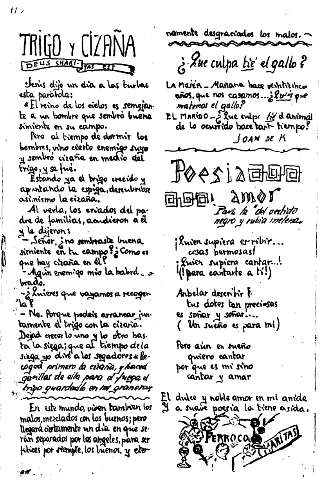 TRIGO Y CIZAÑA
DEUS CHARITAS EST
Jesús dijo un día a las turbas
esta parábola:
"El reino de los cielos es semejan-
te a un hombre que sembró buena
simiente en su campo.
Pero al tiempo de dormir los
hombres, vino cierto enemigo suyo
y sembró cizaña en medio del
trigo, y se fué.
Estando ya el trigo crecido y
apuntando la espiga, descubrióse
asimismo la cizaña.
Al verla, los criados del pa-
dre de familias, acudieron a él
y le dijeron:
— Señor, ¿no sembraste buena
simiente en tu campo? ¿Cómo es
que hay cizaña en él?
— Algún enemigo mío la habrá
brado.
— ¿Quieres que vayamos a recoger-
la?
— No. Porque podéis arrancar jun-
tamente el trigo con la cizaña.
Dejad crecer lo uno y lo otro has-
ta la siega; que al tiempo de la
siega yo diré a los segadores:
coged primero la cizaña, y haced
gavillas de ella para el fuego, el
trigo guardadlo en mi granero"
En este mundo viven también los
malos, mezclados con los buenos; pero
llegará ciertamente un día en que se-
rán separados por los ángeles, para ser
felices por siempre, los buenos, y eter-
namente desgraciados los malos.
¿Que culpa tié el gallo?
LA MUJER — Mañana hace veinticinco
años, que nos casamos... ¿Quiés que
matemos el gallo?
EL MARIDO — ¿Que culpa tié el animal
de lo ocurrido hace tanto tiempo?
JUAN DE K
Poesia
amor
Para la "del vestido
negro y rubia melena.
¡Quien supiera escribir...
cosas hermosas!
¡Quien supiera cantar...!
(¡para cantarte a ti!)
Anhelar describir
tus dotes tan preciosas
es soñar y soñar....
(Un sueño es para mi)
Pero aún en sueño
quiero cantar
por que es mi sino
cantar y amar
El dulce y noble amor en mi anida
Y a suave poesia la tiene asida.
PERROCA
CHARITAS